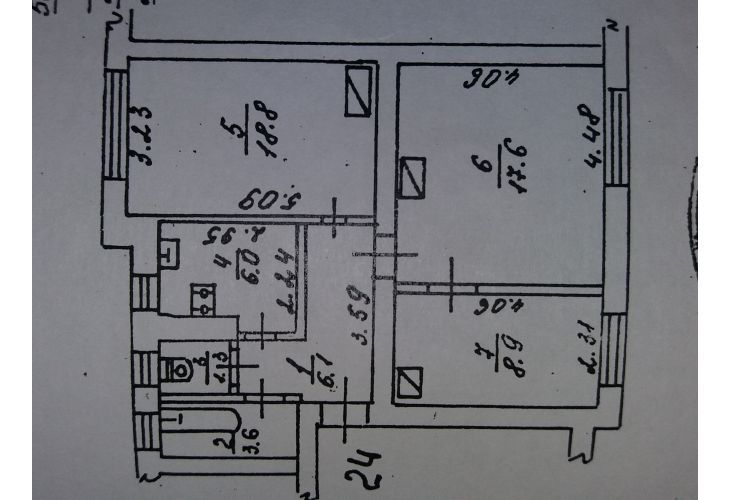 5
18.8
3.23
5.09
4.06
6
17.6
4.48
2.95
4
6.0
2.24
3.59
4.06
7
8.9
2.31
1
6.1
3
1.13
2
3.6
24